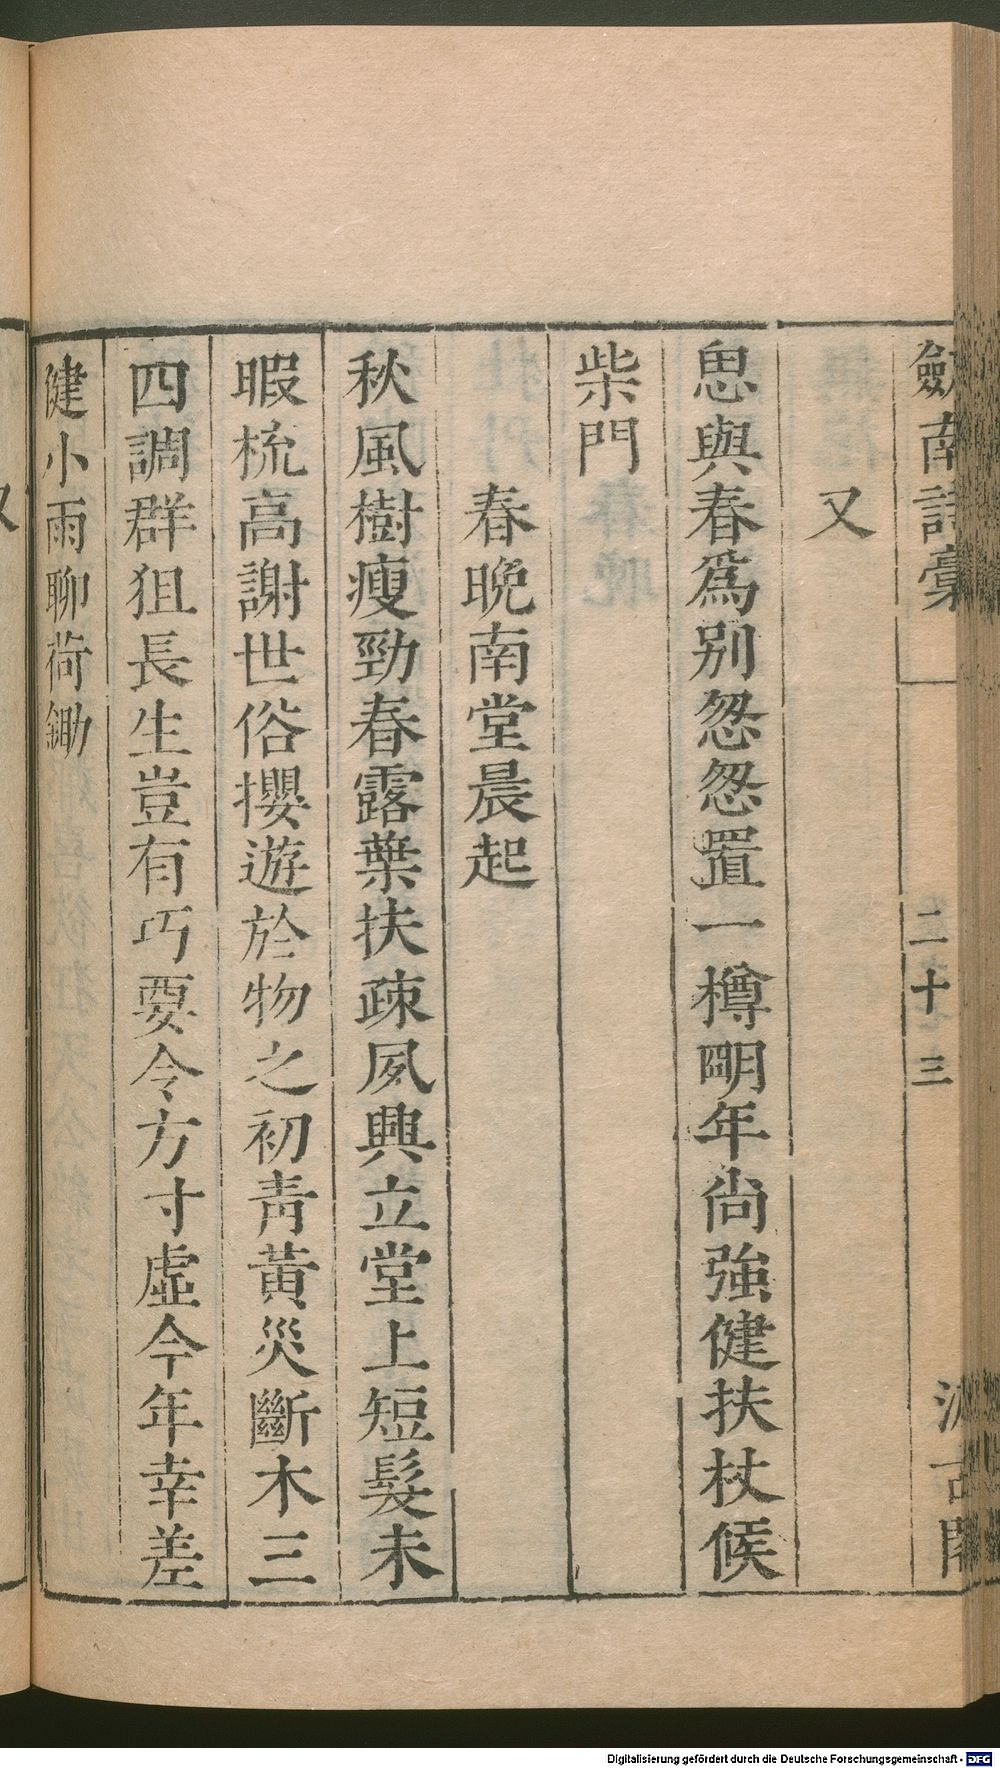 劒南詩稾
二十三
汲古閣
又
思與春爲别怱怱置一樽明年尚強健扶杖候
柴門
春晚南堂晨起
秋風樹瘦勁春露葉扶疎夙興立堂上短髮未
暇梳高謝世俗攖遊於物之初靑黃災斷木三
四調群狙長生豈有巧要令方寸虛今年幸差
健小雨聊荷鋤
Digitalisierung gefördert durch die Deutsche Forschungsgemeinschaft - DFG